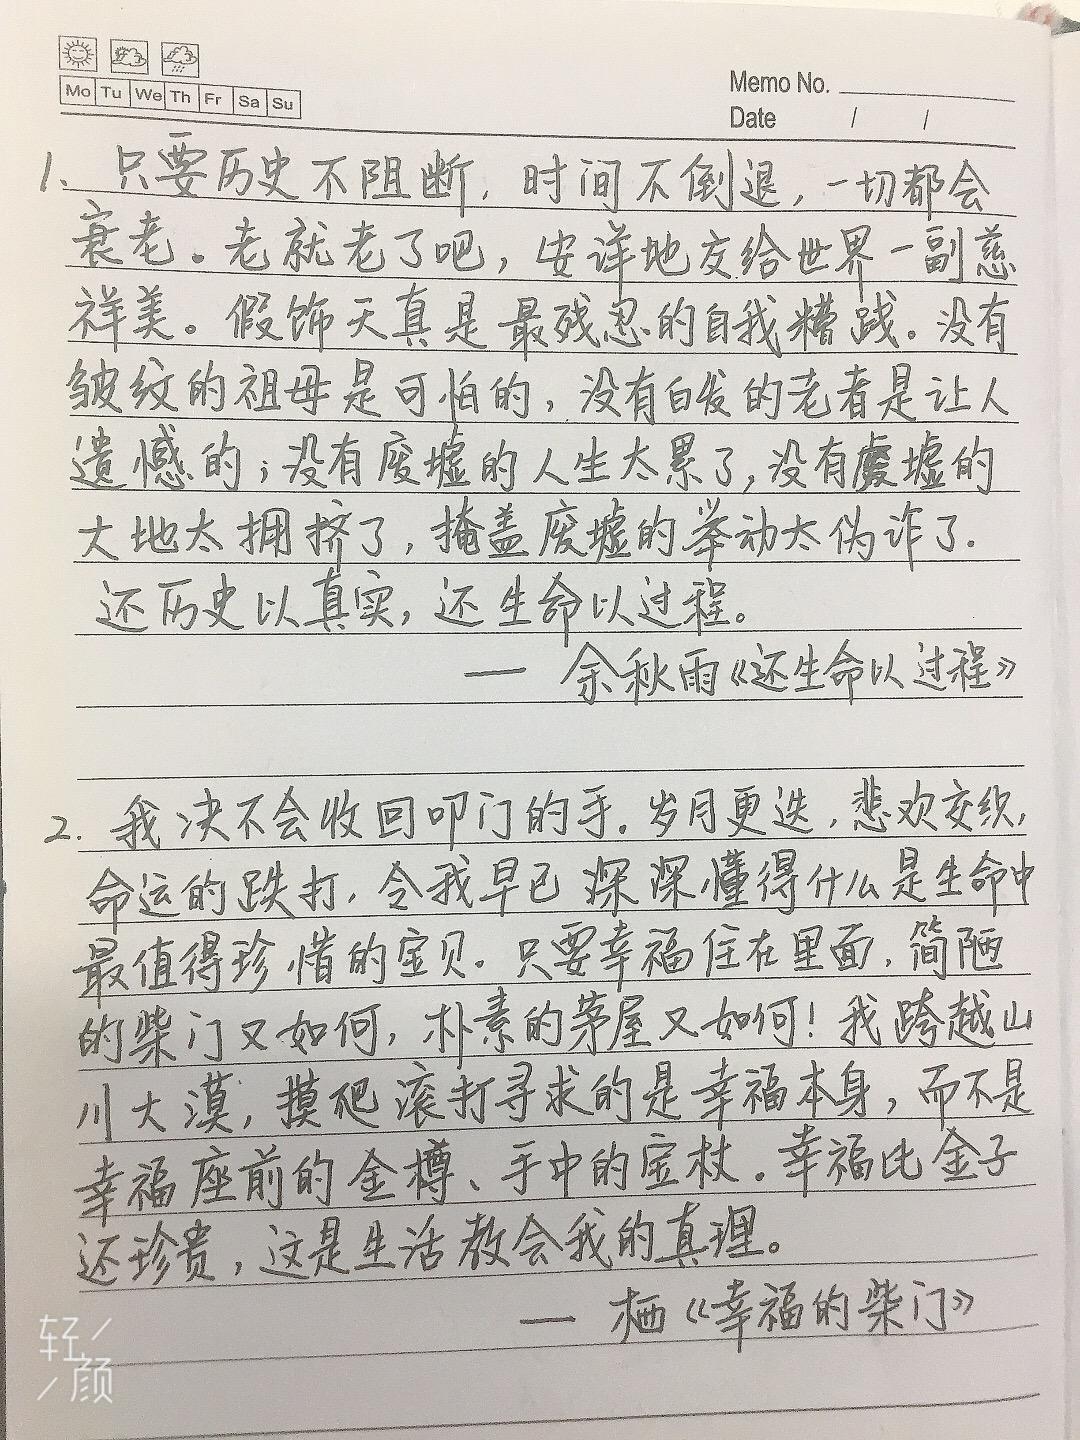 Mo Tu We Th Fr Sa Su
Memo No.
Date / /
1、只要历史不阻断,时间不倒退,一切都会
衰老。老就老了吧,安详地交给世界一副慈
祥美。假饰天真是最残忍的自我糟践。没有
皱纹的祖母是可怕的,没有白发的老者是让人
遗憾的;没有废墟的人生太累了,没有废墟的
大地太拥挤了,掩盖废墟的举动太伪诈了.
还历史以真实,还生命以过程。
— 余秋雨《还生命以过程》
2. 我决不会收回叩门的手.岁月更迭,悲欢交织,
命运的跌打,令我早已深深懂得什么是生命中
最值得珍惜的宝贝。只要幸福住在里面,简陋
的柴门又如何,朴素的茅屋又如何!我跨越山
川大漠,摸爬滚打寻求的是幸福本身,而不是
幸福座前的金樽、手中的宝杖.幸福比金子
还珍贵,这是生活教会我的真理。
— 栖《幸福的柴门》
轻
颜